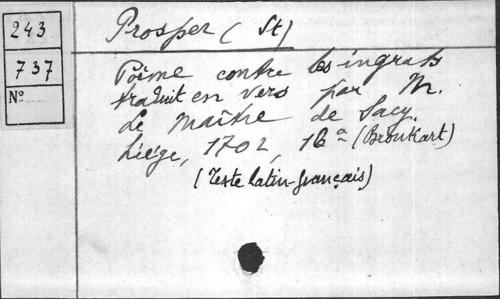 243
737
No
Prosper (St)
Poëme contre les ingrats
traduit en vers par M.
Le Maître de Sacy.
Liége, 1702, 16° (Bronkart)
(Texte latin-français)